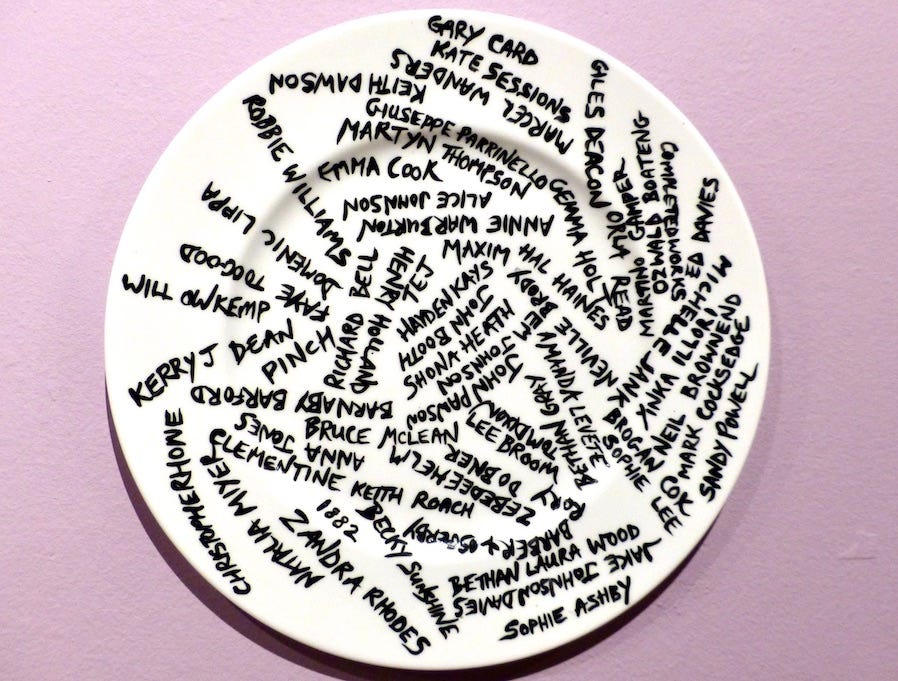 GARY CARD
KATE SESSIONS
MARCEL WANDERS
KEITH DAWSON
GIUSEPPE PARRINELLO
MARTYN THOMPSON
EMMA COOK
ALICE JOHNSON
ANNIE WARBURTON
ROBBIE WILLIAMS
DOMENIC LIPPA
FAYE TOOGOOD
TIM
KERRY J DEAN
PINCH
RICHARD BELL
HENRY HOLLAND
TEJ
GILES DEACON
GEMMA HOLT
ORLA READ
MARTINO GAMPER
OZWALD BOATENG
COMPLETEDWORKS
ED DAVIES
MICHELLE JANK
YINKA ILLORI
NEIL BROWNEND
MARK COCKSEDGE
SANDY POWELL
LEE COX
SOPHIE BROGAN
NEVILLE BRODY
MAXIM
HAL HAINES
HAYDEN KAYS
JOHN BOOTH
SHONA HEATH
JOHNSON
JOHN PAWSON
LEE BROOM
BETHAN GRAY
AMANDA LEVETE
BARNABY BARFORD
BRUCE MCLEAN
ANNA JONES
CLEMENTINE KEITH ROACH
ZEBEDEE HELM
RORY DOBNER
NATALIA MIYER
CHRISTOPHER RHONE
1882
ZANDRA RHODES
BECKY SUNSHINE
BARBER & OSGERBY
BETHAN LAURA WOOD
JAKE JOHNSON DAVIES
SOPHIE ASHBY